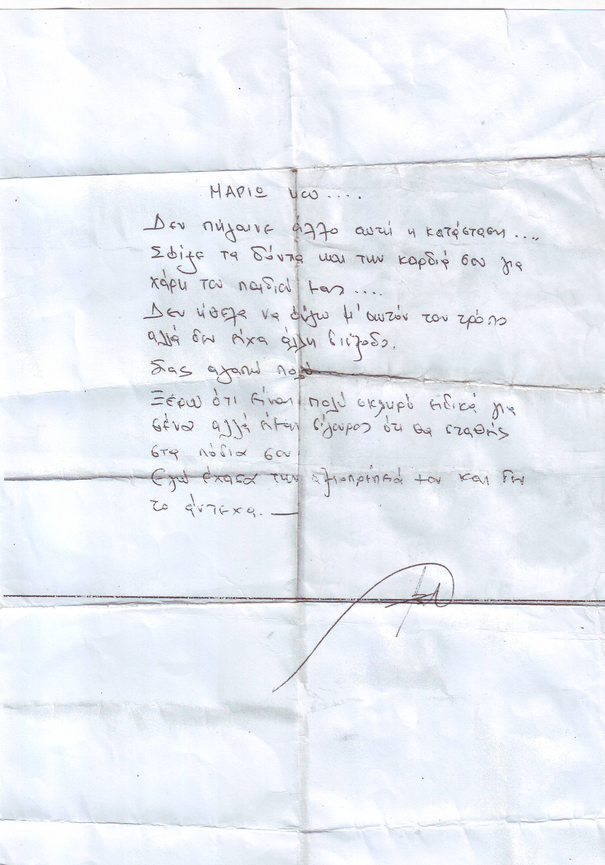 ΜΑΡΙΩ μου....
Δεν πήγαινε άλλο αυτή η κατάσταση....
Σφίξε τα δόντια και την καρδιά σου για
χάρη του παιδιού μας....
Δεν ήθελα να φύγω μ' αυτόν τον τρόπο
αλλά δεν είχα άλλη διέξοδο.
Σας αγαπώ πολύ
Ξέρω ότι είναι πολύ σκληρό ειδικά για
σένα αλλά είμαι σίγουρος ότι θα σταθής
στα πόδια σου
Εγώ έχασα την αξιοπρέπειά μου και δεν
το άντεχα.